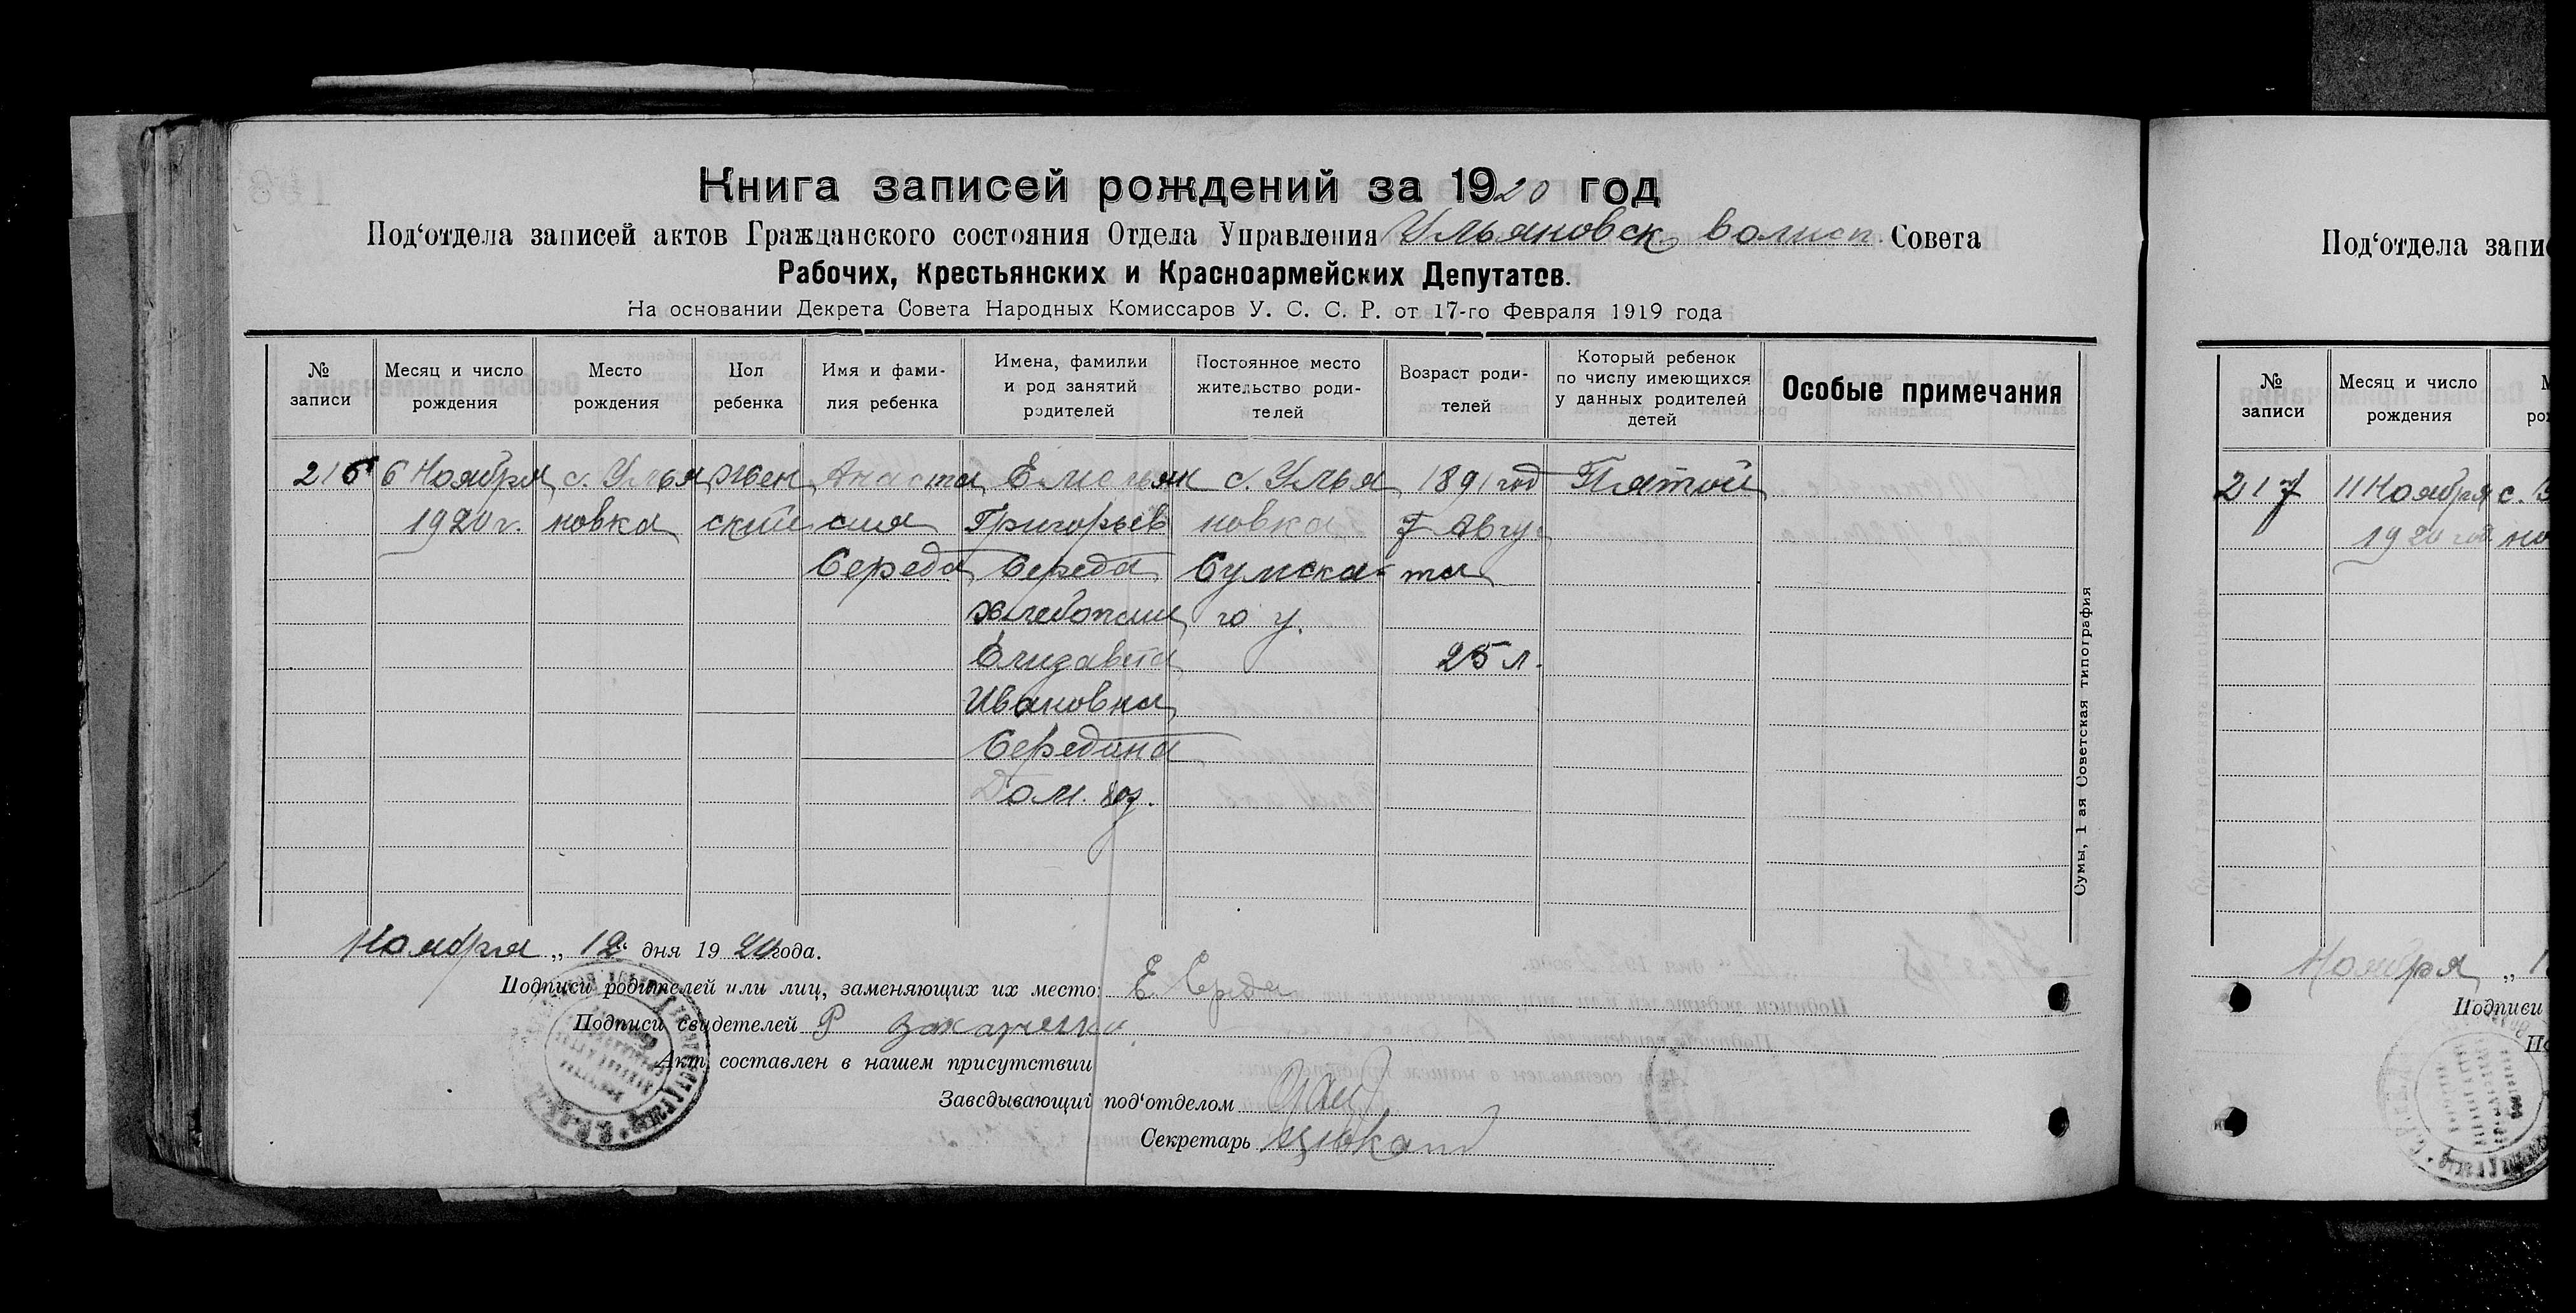 Книга записей рождений за 1920 год
Под‘отдела записей актов Гражданского состояния Отдела Управления Ульяновск. волисп. Совета
Рабочих, Крестьянских и Красноармейских Депутатов.
На основании Декрета Совета Народных Комиссаров У. С. С. Р. от 17-го Февраля 1919 года
№ записи
Месяц и число рождения
Место рождения
Пол ребенка
Имя и фами-
лия ребенка
Имена, фамилии
и род занятий
родителей
Постоянное место
жительство роди-
телей
Возраст роди-
телей
Который ребенок
по числу имеющихся
у данных родителей
детей
Особые примечания
216
6 Ноября
1920 г.
с. Улья
новка
жен
ский
Анаста
сия
Середа
Емельян
Григорьев
Середа
хлебопаш
Елизавета
Ивановна
Середина
Дом. хоз.
с. Улья
новка
Сумска-
го у.
1891 год
7 Авгу-
та
25 л.
Пятой
Сумы, 1 ая Советская типография
Ноября „ 12 “ дня 1920 года.
Подписи родителей или лиц, заменяющих их место: Е. Середа
Подписи свидетелей Р Захарченко
Акт составлен в нашем присутствии
Заведывающий под‘отделом
Секретарь
Под‘отдела запи
№ записи
Месяц и число рождения
217
11 Ноября
1920 год
с.
но
Ноября „ 1
Подписи